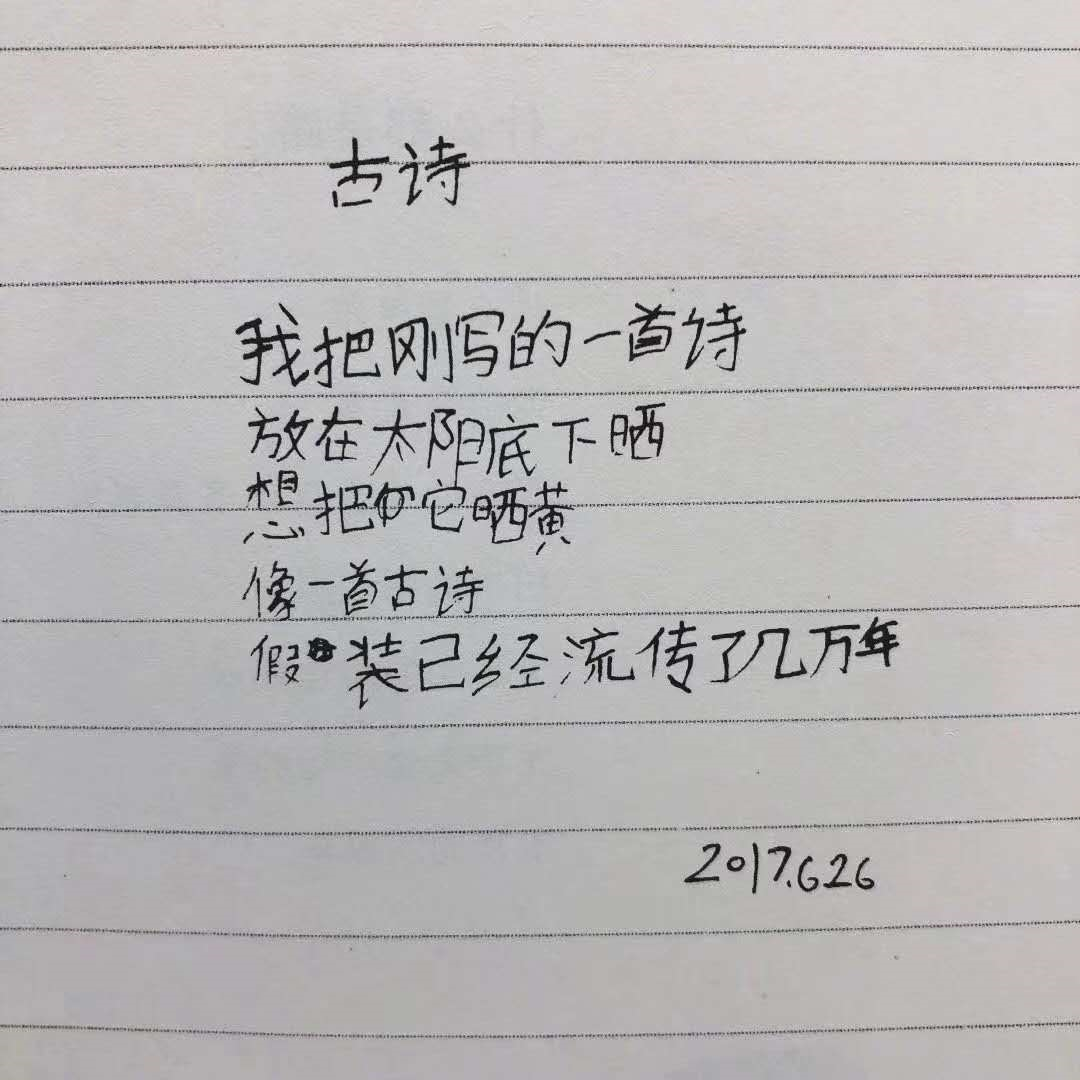 古诗
我把刚写的一首诗
放在太阳底下晒
想把它晒黄
像一首古诗
假装已经流传了几万年
2017.6.26